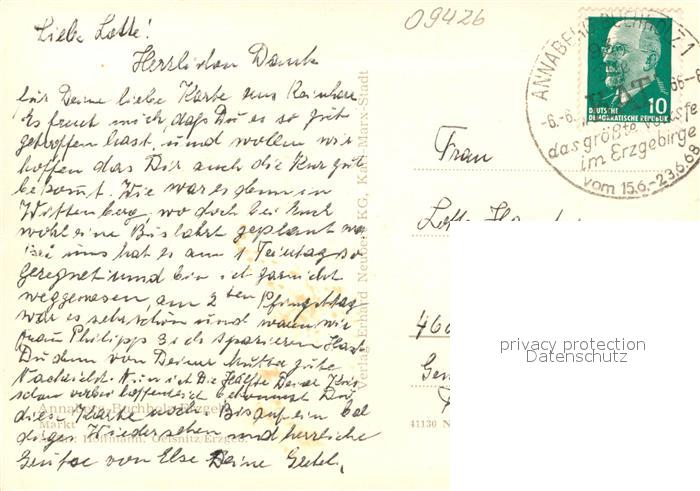 Liebe Lotte!
Herzlichen Dank
für Deine liebe Karte aus
Es freut mich, daß Du es so gut
getroffen hast, und wollen wir
hoffen das Dir auch die Kur gut
bekomt. Wie war es denn in
Wittenberg, wo doch bei Euch
wohl eine Busfahrt geplant war
Bei uns hat es am 1 Feiertag so
geregnet und bin ich garnicht
weggewesen, am 2ten Pfingsttag
war es sehr schön und waren wir
Frau Philipps 3 ich spazieren Hast
Du denn von Deiner Mutter gute
Nachricht. Nun ist die Hälfte Deiner Kur
schon vorbei hoffentlich bekommst Du
diese Karte noch. Bis auf ein bal
diges Wiedersehen und herzliche
Grüße von Else Deine Gretel.
Annaberg-Buchholz/Erzgeb.
Markt
Hoffmann, Gelsnitz/Erzgeb.
Verlag Erhard Neubert KG, Karl-Marx-Stadt
09426
ANNABERG-BUCHHOLZ 1
-6.-6.
66-6
das größte Volksfe
im Erzgebirge
vom 15.6.-23.6.68
DEUTSCHE
DEMOKRATISCHE REPUBLIK
10
Frau
Lotte
460
41130 N
privacy protection
Datenschutz